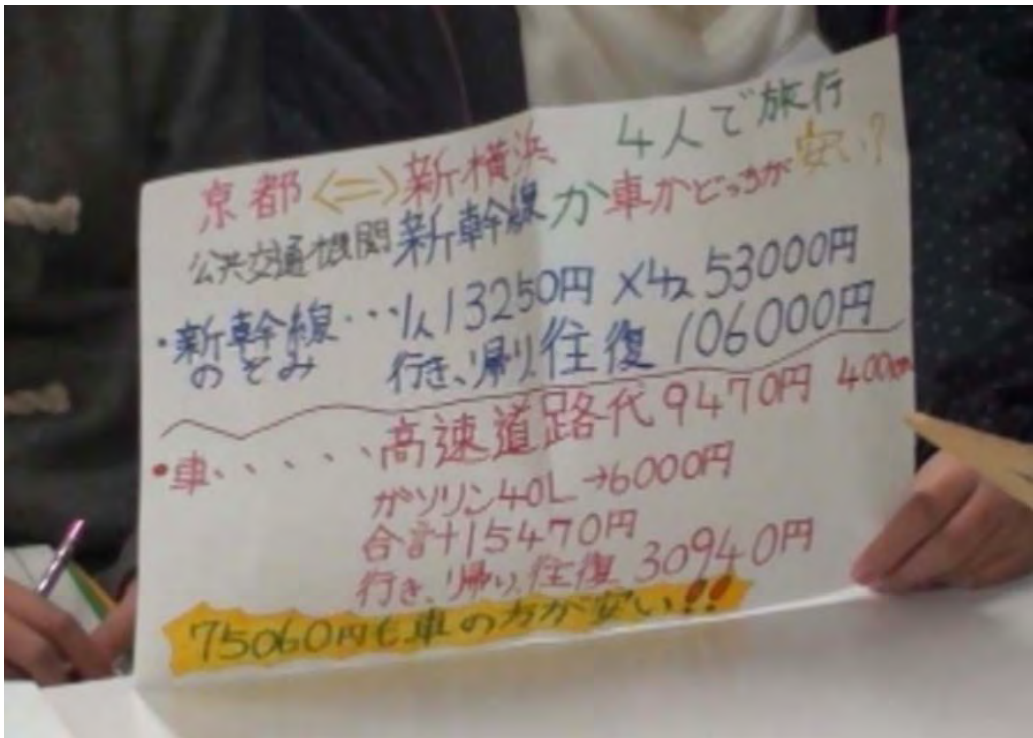 京都⇔新横浜 4人で旅行
公共交通機関新幹線か車かどっちが安い?
・新幹線・・・1人13250円×4人53000円
のぞみ 行き、帰り、往復 106000円
・車、、、、、高速道路代9470円 400km
ガソリン40L→6000円
合計15470円
行き、帰り、往復 30940円
75060円も車の方が安い!!